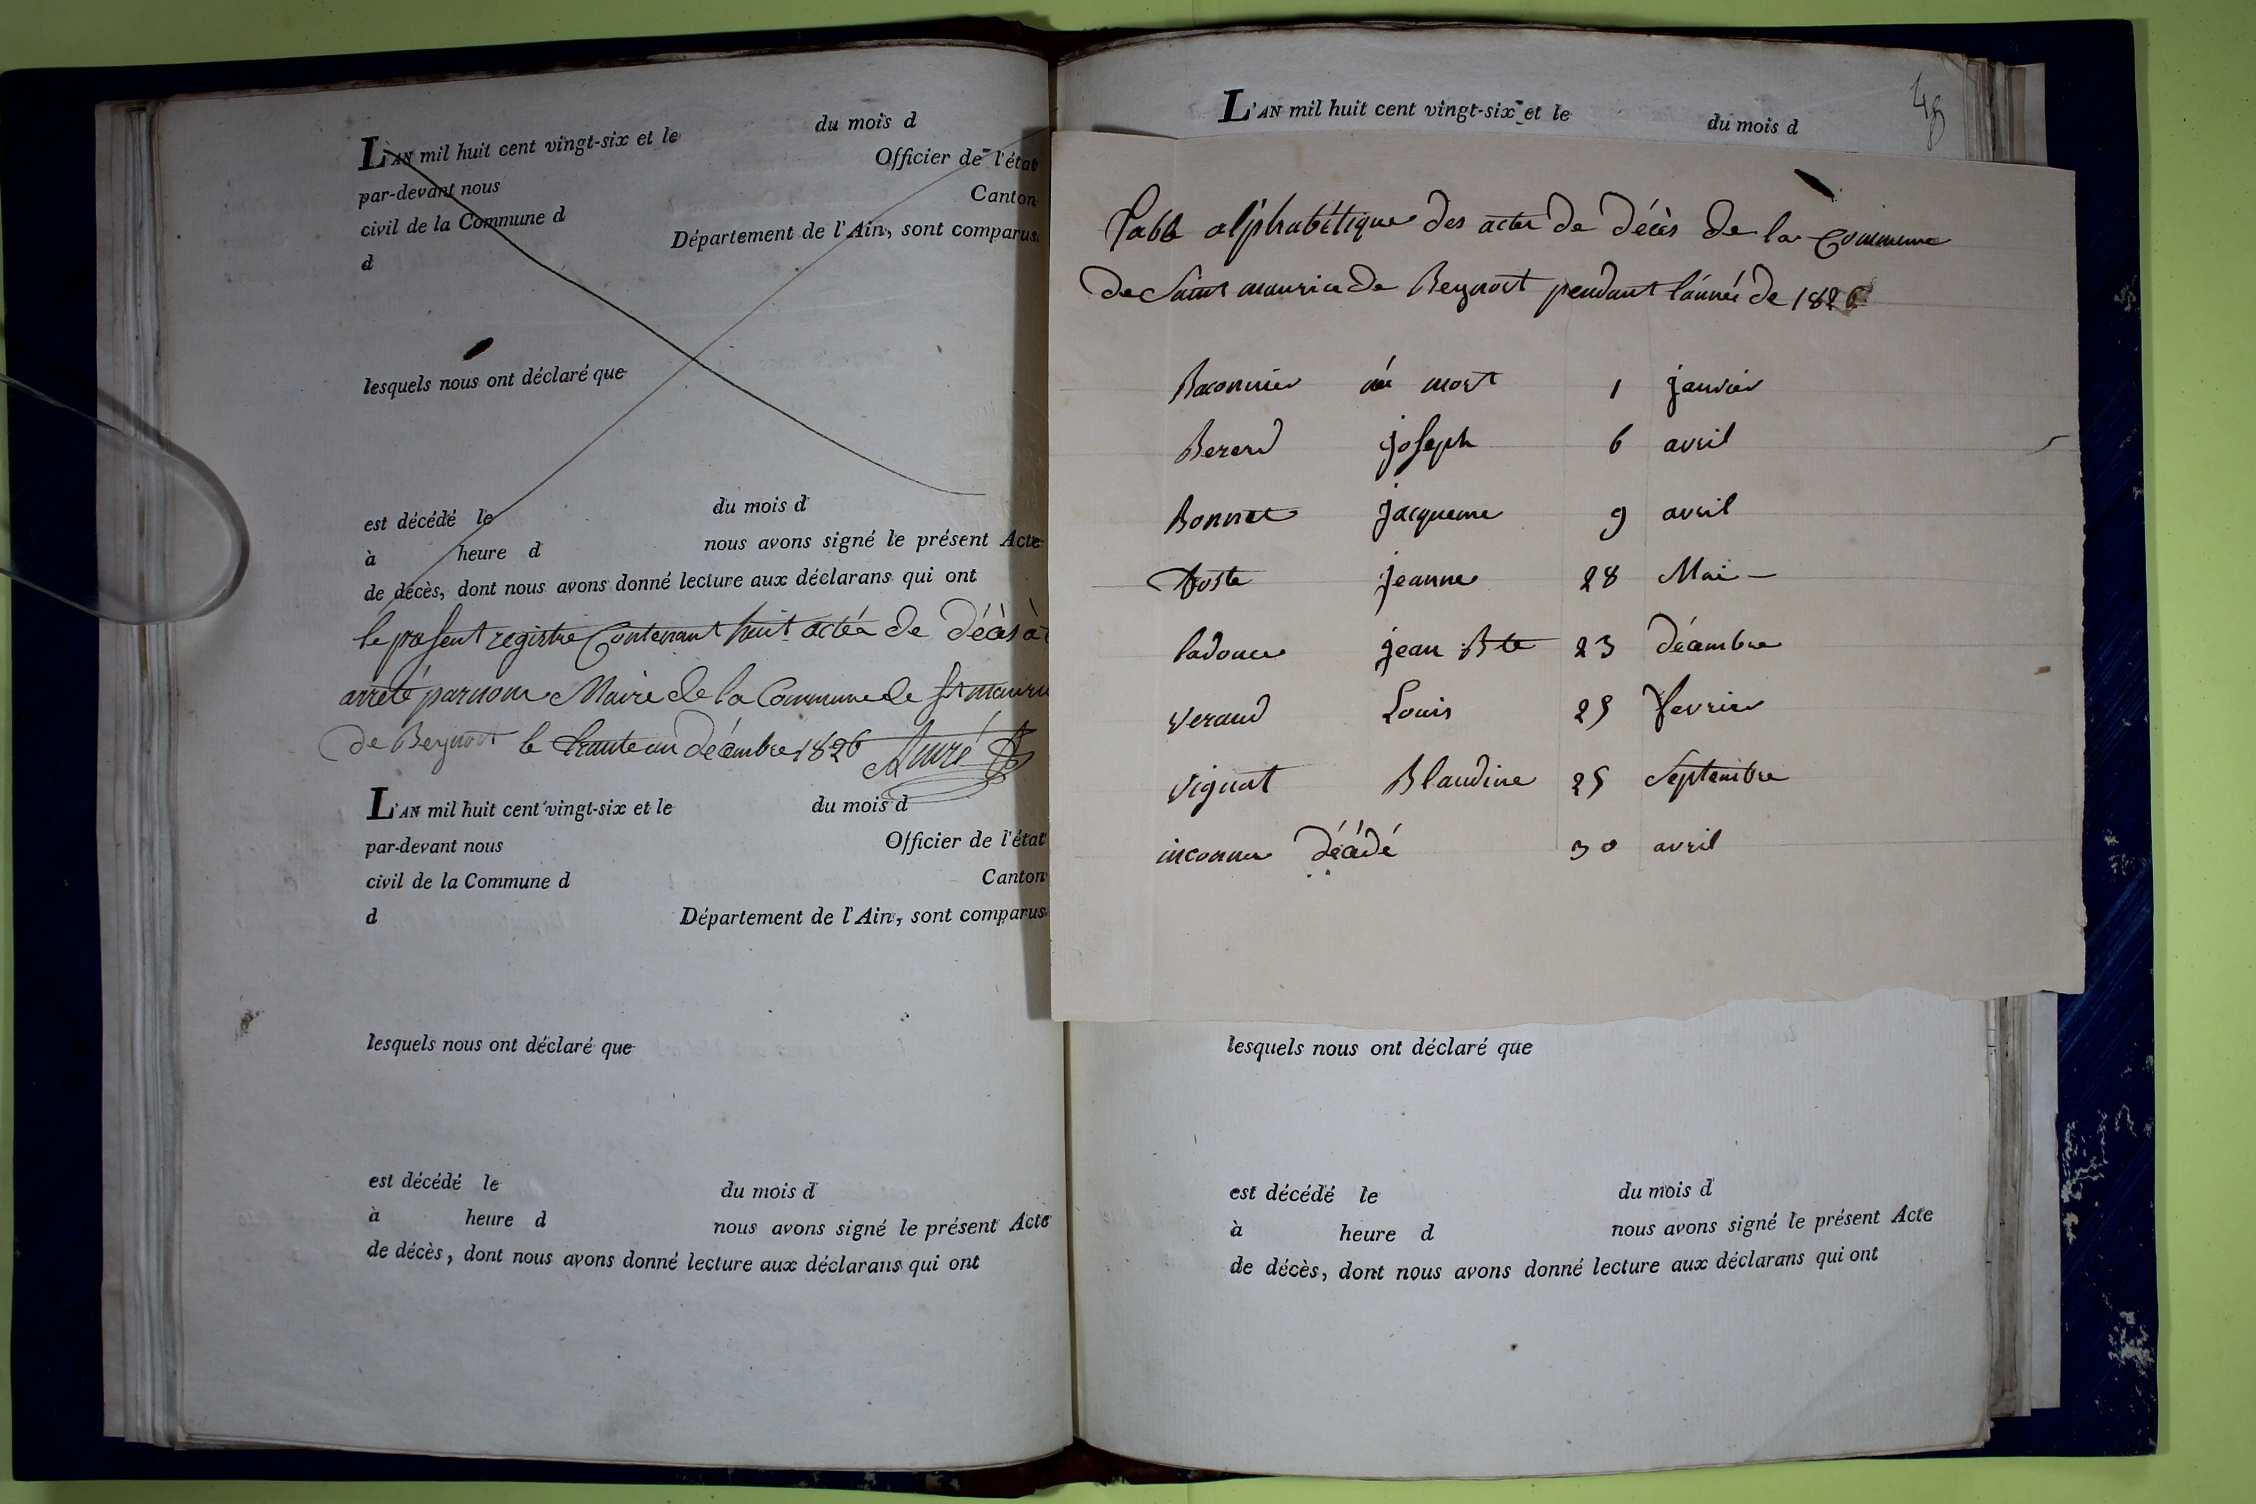 L'AN mil huit cent vingt-six et le du mois d
par-devant nous Officier de l'état
civil de la Commune d Canton
d Département de l'Ain, sont comparus
lesquels nous ont déclaré que
est décédé le du mois d
à heure d nous avons signé le présent Acte
de décès, dont nous avons donné lecture aux déclarans qui ont
le present registre Contenant huit actes de décès a
arrêté par nous Maire de la Commune de St mauri
de Beynost le trante un décembre 1826
L'AN mil huit cent vingt-six et le du mois d
par-devant nous Officier de l'état
civil de la Commune d Canton
d Département de l'Ain, sont comparus
lesquels nous ont déclaré que
est décédé le du mois d
à heure d nous avons signé le présent Acte
de décès, dont nous avons donné lecture aux déclarans qui ont
48
L'AN mil huit cent vingt-six et le du mois d
Table alphabétique des actes de décès de la Commune
de Saint maurice de Beynost pendant l'année de 1826
Baconnier né mort 1 janvier
Bererd joseph 6 avril
Bonnet jacqueme 9 avril
jeanne 28 Mai
Ladouce jean Bte 23 décembre
Veraud Louis 25 fevrier
Vignat Blandine 25 Septembre
inconnu décédé 30 avril
lesquels nous ont déclaré que
est décédé le du mois d
à heure d nous avons signé le présent Acte
de décès, dont nous avons donné lecture aux déclarans qui ont